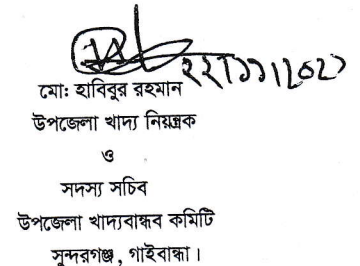 মো: হাবিবুর রহমান
উপজেলা খাদ্য নিয়ন্ত্রক
ও
সদস্য সচিব
উপজেলা খাদ্যবান্ধব কমিটি
সুন্দরগঞ্জ, গাইবান্ধা।